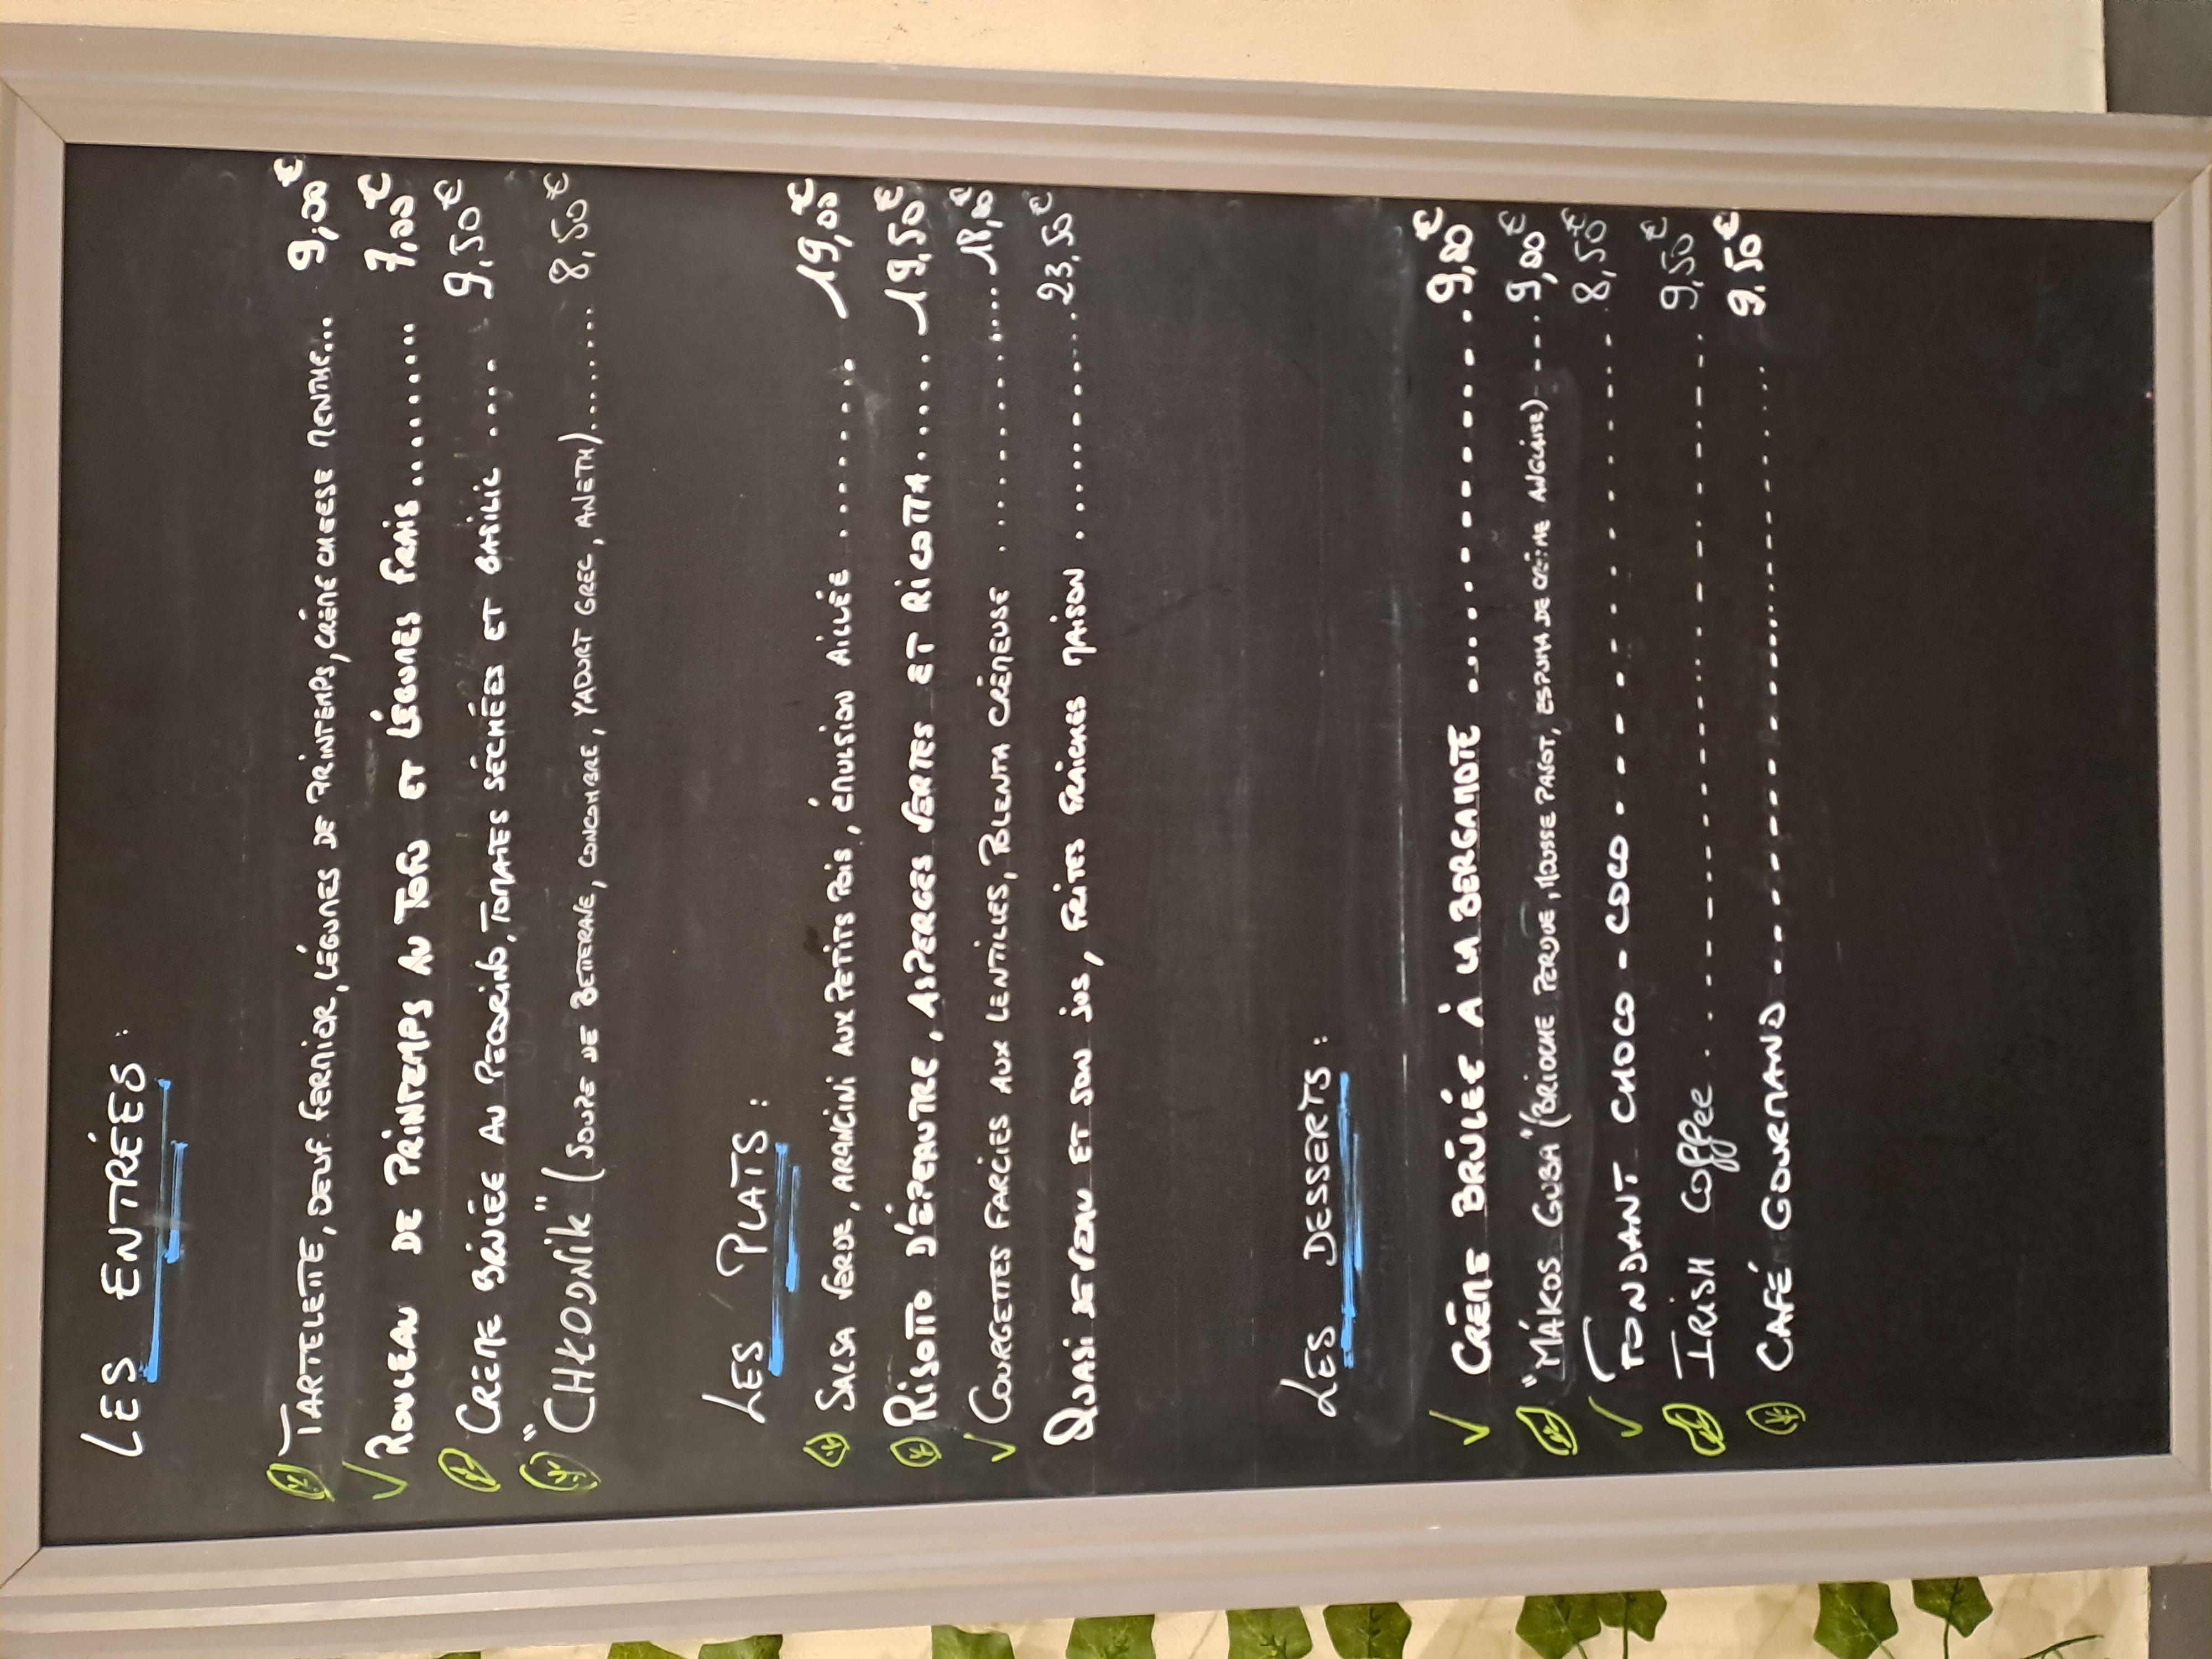 LES ENTRÉES :
TARTELETTE, OEUF FERMIER, LÉGUMES DE PRINTEMPS, CRÈME CHEESE MENTHE... 9,00€
ROULEAU DE PRINTEMPS AU TOFU ET LÉGUMES FRAIS......... 7,00€
CREME BRULÉE AU PECORINO, TOMATES SÉCHÉES ET BASILIC .... 9,50€
"CHŁODNIK" (SOUPE DE BETTERAVE, CONCOMBRE, YAOURT GREC, ANETH)....... 8,50€
LES PLATS :
SALSA VERDE, ARANCINI AUX PETITS POIS, ÉMULSION AILLÉE ........ 19,00€
RISOTTO D'ÉPEAUTRE, ASPERGES VERTES ET RICOTTA...... 19,50€
COURGETTES FARCIES AUX LENTILLES, POLENTA CRÉMEUSE ............. 18,00€
QUASI DE VEAU ET SON JUS, FRITES FRAICHES MAISON ............ 23,50€
LES DESSERTS :
CRÈME BRÛLÉE À LA BERGAMOTE ............... 9,00€
"MÁKOS GUBA" (BRIOCHE PERDUE, MOUSSE PAVOT, ESPUMA DE CRÈME ANGLAISE)---- 9,00€
FONDANT CHOCO - COCO.............. 8,50€
IRISH COFFEE .................... 9,50€
CAFÉ GOURMAND.................... 9.50€